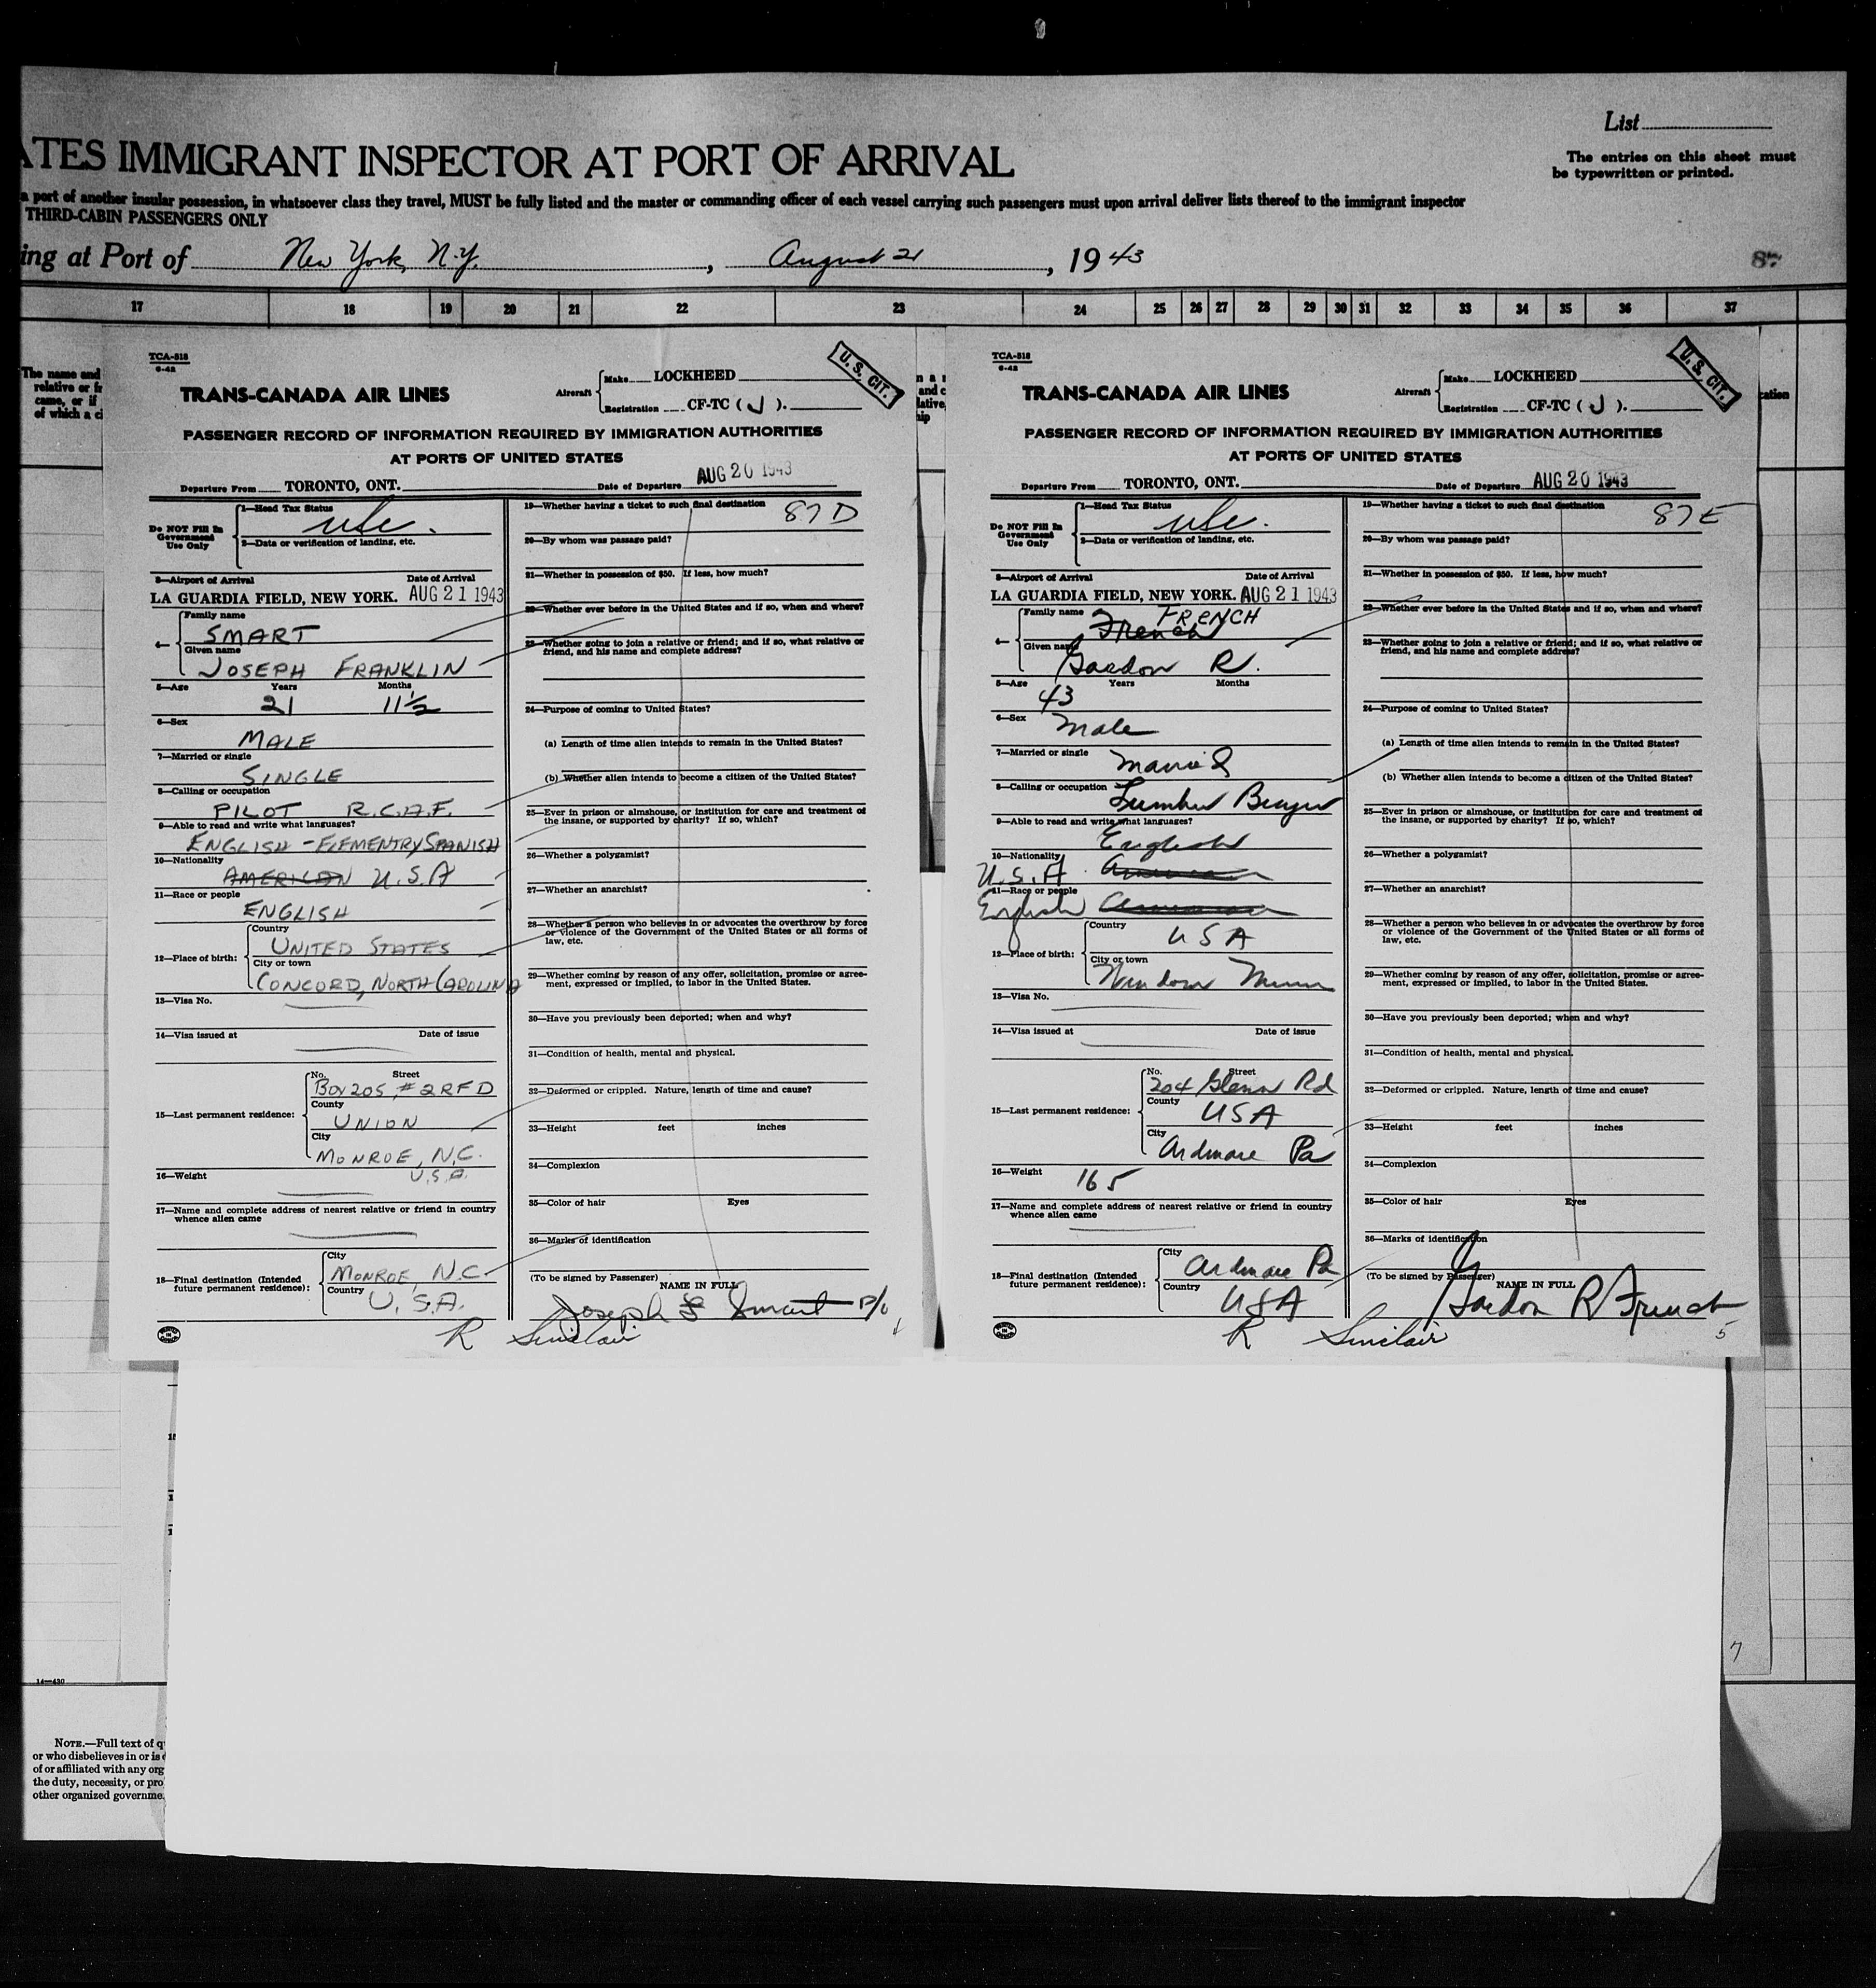 List
ATES IMMIGRANT INSPECTOR AT PORT OF ARRIVAL
The entries on this sheet must
be typewritten or printed.
a port of another insular possession, in whatsoever class they travel, MUST be fully listed and the master or commanding officer of each vessel carrying such passengers must upon arrival deliver lists thereof to the immigrant inspector
THIRD-CABIN PASSENGERS ONLY
ing at Port of New York, N.Y., August 21, 1943
17 18 19 20 21 22 23 24 25 26 27 28 29 30 31 32 33 34 35 36 37
The name and
relative or fr
came, or if
of which a ci
TCA-818
6-42
TRANS-CANADA AIR LINES
Aircraft
Make LOCKHEED
Registration CF-TC (J).
U.S. CIT.
PASSENGER RECORD OF INFORMATION REQUIRED BY IMMIGRATION AUTHORITIES
AT PORTS OF UNITED STATES
Departure From TORONTO, ONT. Date of Departure AUG 20 1943
Do NOT Fill In
Government
Use Only
1—Head Tax Status
usc.
2—Data or verification of landing, etc.
3—Airport of Arrival Date of Arrival
LA GUARDIA FIELD, NEW YORK. AUG 21 1943
4—
Family name
SMART
Given name
JOSEPH FRANKLIN
5—Age Years Months
21 11½
6—Sex
MALE
7—Married or single
SINGLE
8—Calling or occupation
PILOT R.C.A.F.
9—Able to read and write what languages?
ENGLISH - ELEMENTRY SPANISH
10—Nationality
AMERICAN U.S.A
11—Race or people
ENGLISH
12—Place of birth:
Country
UNITED STATES
City or town
CONCORD, NORTH CAROLINA
13—Visa No.
14—Visa issued at Date of issue
15—Last permanent residence:
No. Street
BOX 205, #2 RFD
County
UNION
City
MONROE, N.C.
U.S.A.
16—Weight
17—Name and complete address of nearest relative or friend in country
whence alien came
18—Final destination (Intended
future permanent residence):
City
MONROE N.C.
Country
U.S.A.
19—Whether having a ticket to such final destination
87 D
20—By whom was passage paid?
21—Whether in possession of $50. If less, how much?
22—Whether ever before in the United States and if so, when and where?
23—Whether going to join a relative or friend; and if so, what relative or
friend, and his name and complete address?
24—Purpose of coming to United States?
(a) Length of time alien intends to remain in the United States?
(b) Whether alien intends to become a citizen of the United States?
25—Ever in prison or almshouse, or institution for care and treatment of
the insane, or supported by charity? If so, which?
26—Whether a polygamist?
27—Whether an anarchist?
28—Whether a person who believes in or advocates the overthrow by force
or violence of the Government of the United States or all forms of
law, etc.
29—Whether coming by reason of any offer, solicitation, promise or agree-
ment, expressed or implied, to labor in the United States.
30—Have you previously been deported; when and why?
31—Condition of health, mental and physical.
32—Deformed or crippled. Nature, length of time and cause?
33—Height feet inches
34—Complexion
35—Color of hair Eyes
36—Marks of identification
(To be signed by Passenger)
NAME IN FULL
Joseph F Smart P/O
R Sinclair
TCA-818
6-42
TRANS-CANADA AIR LINES
Aircraft
Make LOCKHEED
Registration CF-TC (J).
U.S. CIT.
PASSENGER RECORD OF INFORMATION REQUIRED BY IMMIGRATION AUTHORITIES
AT PORTS OF UNITED STATES
Departure From TORONTO, ONT. Date of Departure AUG 20 1943
Do NOT Fill In
Government
Use Only
1—Head Tax Status
usc.
2—Data or verification of landing, etc.
3—Airport of Arrival Date of Arrival
LA GUARDIA FIELD, NEW YORK. AUG 21 1943
4—
Family name
FRENCH
French
Given name
Gordon R.
5—Age Years Months
43
6—Sex
Male
7—Married or single
Married
8—Calling or occupation
Lumber Buyer
9—Able to read and write what languages?
English
10—Nationality
U.S.A. American
11—Race or people
English American
12—Place of birth:
Country
USA
City or town
Windom Minn
13—Visa No.
14—Visa issued at Date of issue
15—Last permanent residence:
No. Street
204 Glenn Rd
County
USA
City
Ardmore Pa
16—Weight
165
17—Name and complete address of nearest relative or friend in country
whence alien came
18—Final destination (Intended
future permanent residence):
City
Ardmore Pa
Country
USA
19—Whether having a ticket to such final destination
87 E
20—By whom was passage paid?
21—Whether in possession of $50. If less, how much?
22—Whether ever before in the United States and if so, when and where?
23—Whether going to join a relative or friend; and if so, what relative or
friend, and his name and complete address?
24—Purpose of coming to United States?
(a) Length of time alien intends to remain in the United States?
(b) Whether alien intends to become a citizen of the United States?
25—Ever in prison or almshouse, or institution for care and treatment of
the insane, or supported by charity? If so, which?
26—Whether a polygamist?
27—Whether an anarchist?
28—Whether a person who believes in or advocates the overthrow by force
or violence of the Government of the United States or all forms of
law, etc.
29—Whether coming by reason of any offer, solicitation, promise or agree-
ment, expressed or implied, to labor in the United States.
30—Have you previously been deported; when and why?
31—Condition of health, mental and physical.
32—Deformed or crippled. Nature, length of time and cause?
33—Height feet inches
34—Complexion
35—Color of hair Eyes
36—Marks of identification
(To be signed by Passenger)
NAME IN FULL
Gordon R French
R Sinclair
5
7
14—430
NOTE.—Full text of q
or who disbelieves in or is
of or affiliated with any org
the duty, necessity, or pro
other organized governme